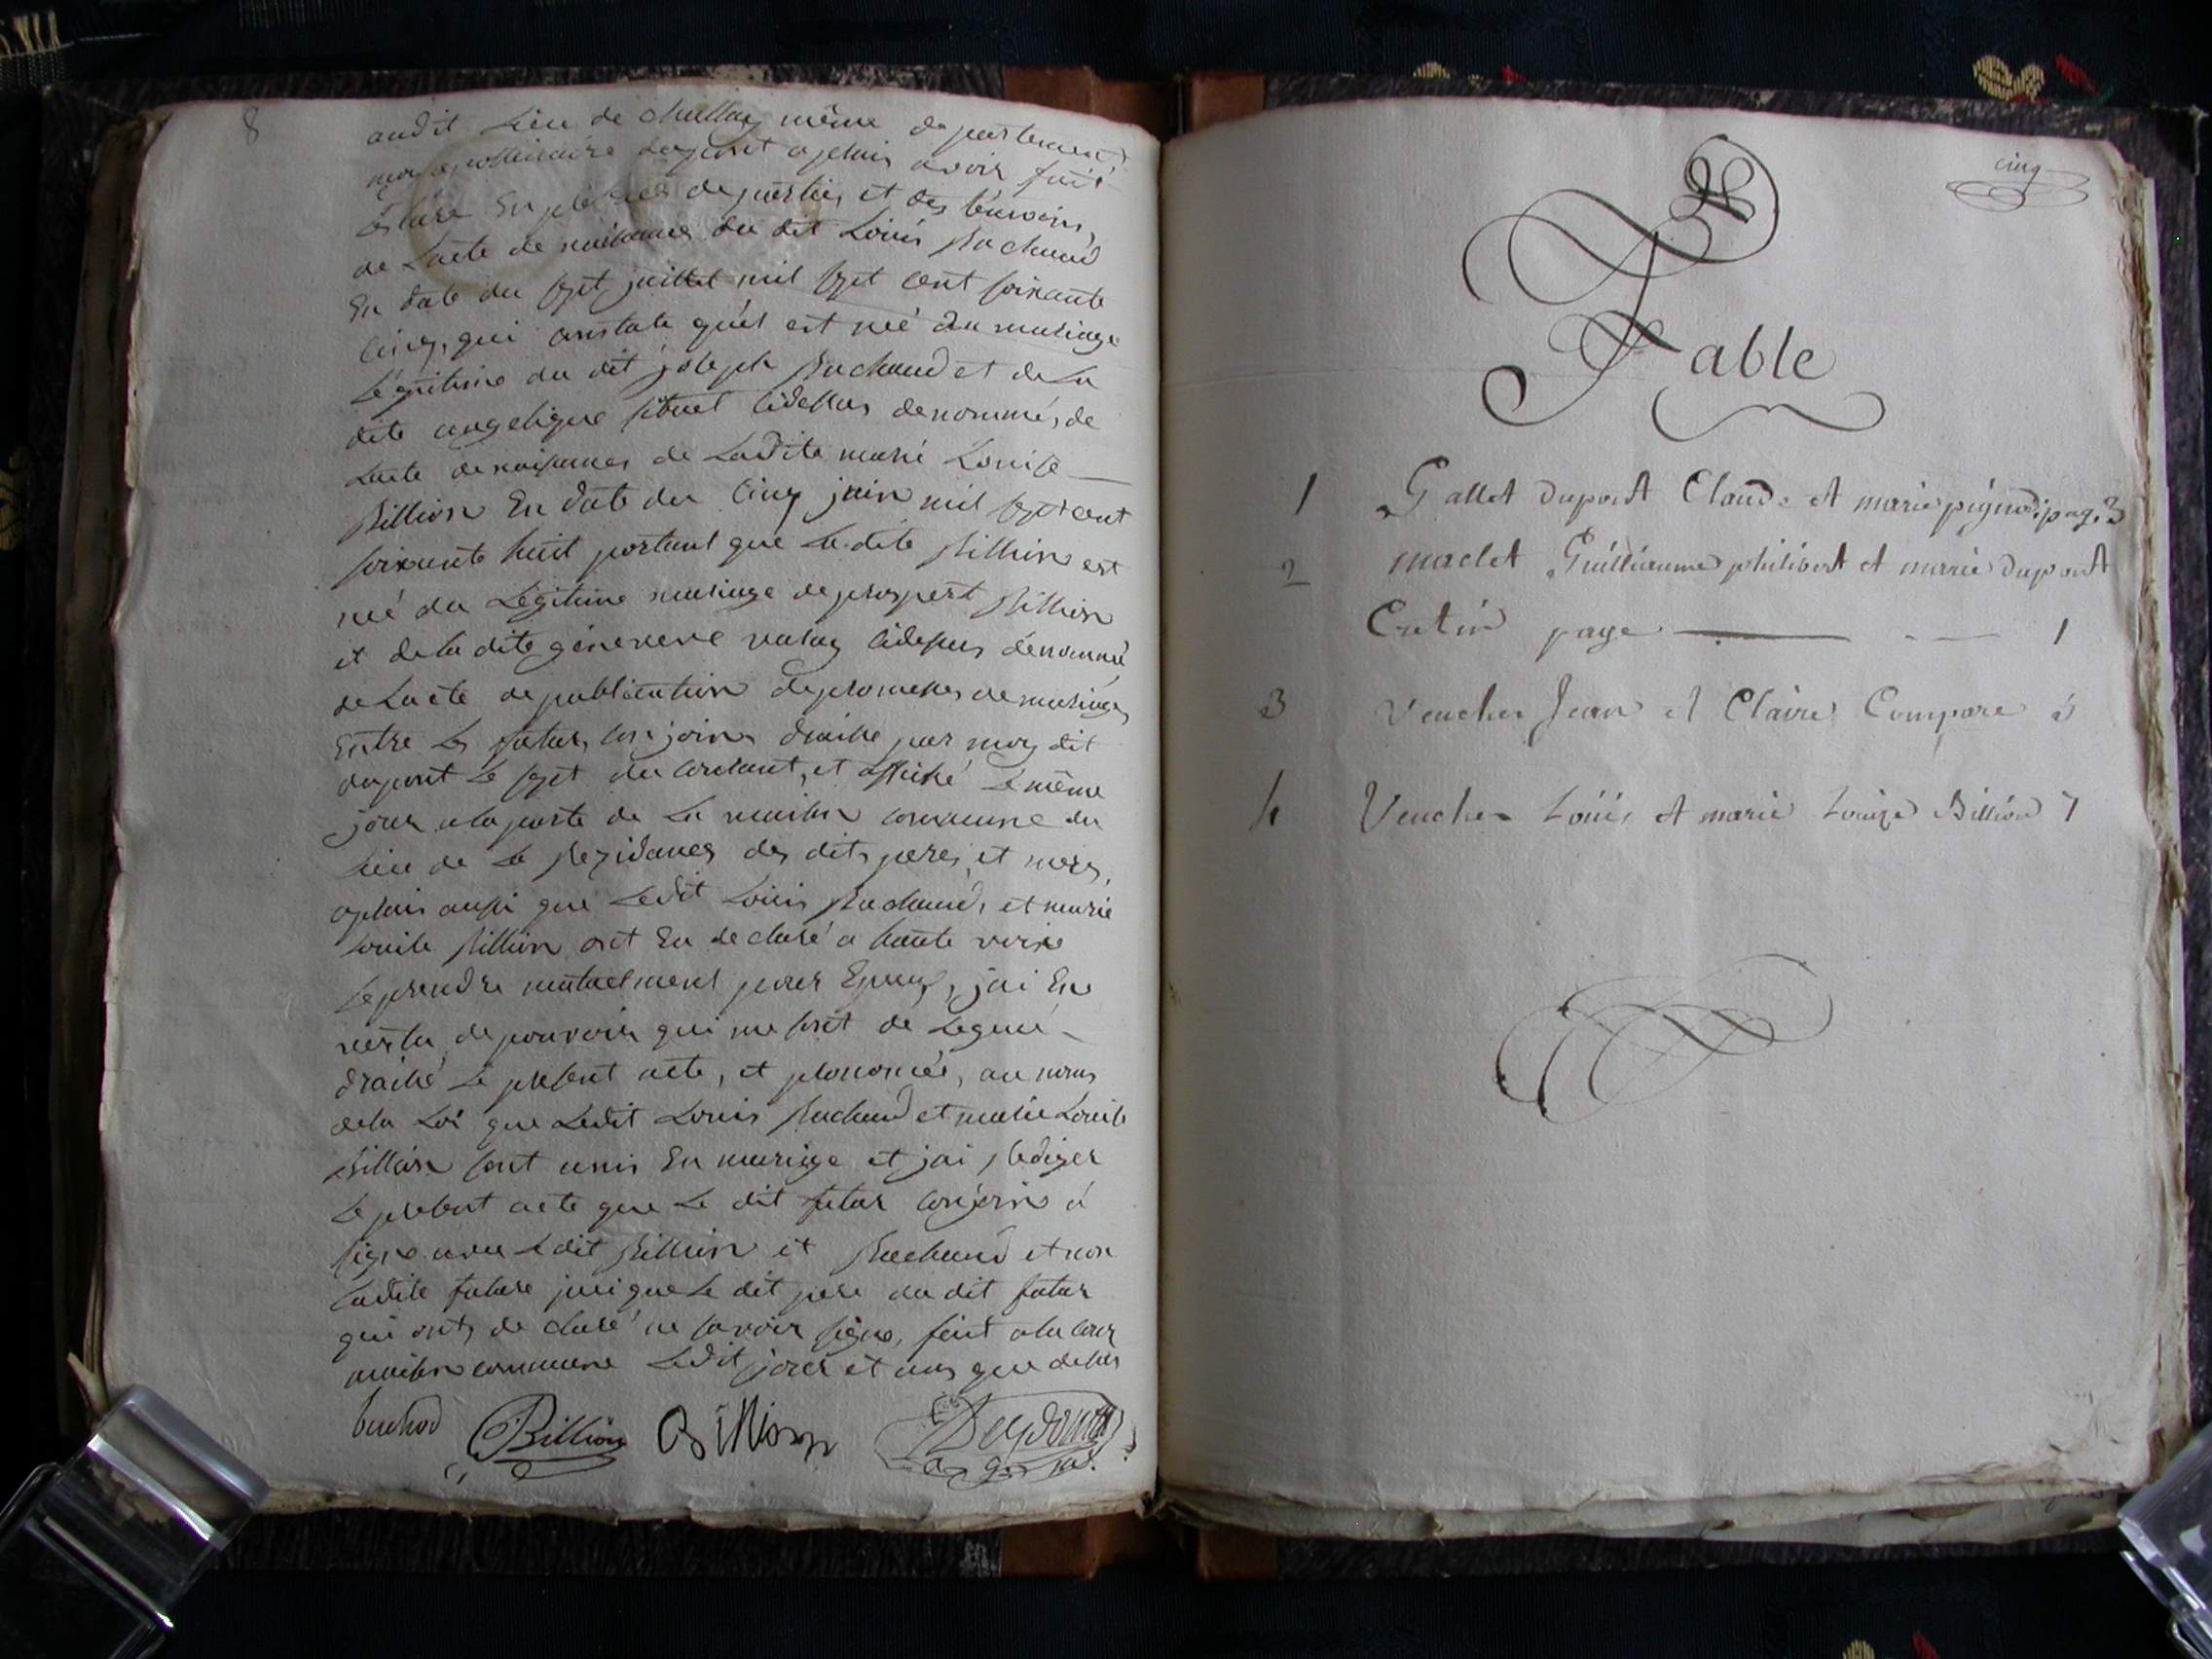 8
audit Lieu de challay même departement
moy dupont apres avoir fait
Lecture En presence de parties et des temoins,
de Lacte de naissance du dit Louis Buchaud
En date du sept juillet mil sept cent soixante
cinq, qui constate quil est né du mariage
Légitime du dit joseph Buchaud et de La
dite angelique cidessus denommés, de
Lacte de naissances de Ladite marie Louise
Billion En date du Cinq juin mil sept cent
soixante huit portant que La dite Billion est
né du Legitime mariage de prospert Billion
et de la dite genevieve cidessus dénommé
de Lacte de publication de promesses de mariages
Entre Les futurs conjoins draissé par moy dit
dupont Le sept du courant, et affiché Le même
jour a la porte de La maison commune du
Lieu de La Rezidances des dits peres, et meres,
apres aussi que Ledit Louis Buchaud, et marie
Louise Billion ont Eu declaré a haute voixe
se prendre mutuelment pour Epoux, jai En
vertu de pouvoirs qui me sont
draissé Le present acte, et prononcés, au noms
de la Loi que Ledit Louis Buchaud et marie Louise
Billion sont unis En mariage et jai Rediger
Le present acte que Le dit futur conjoins á
signe avec Ledit Billion et Buchaud et non
Ladite future Le dit pere du dit futur
qui ont, de claré ne savoir signe, fait a la
maison commune Ledit jour et ans que dessus
buchod Billion Billion Dupont
cinq
Table
1 Gallet dupont Claude et marie pignod: pag. 3
2 maclet Guilliaume philibert et marie dupont
Cretin page 1
3 Veuchod Jean et Claire Compare 5
4 Veuchod Loüis et marie Louize Billion 7